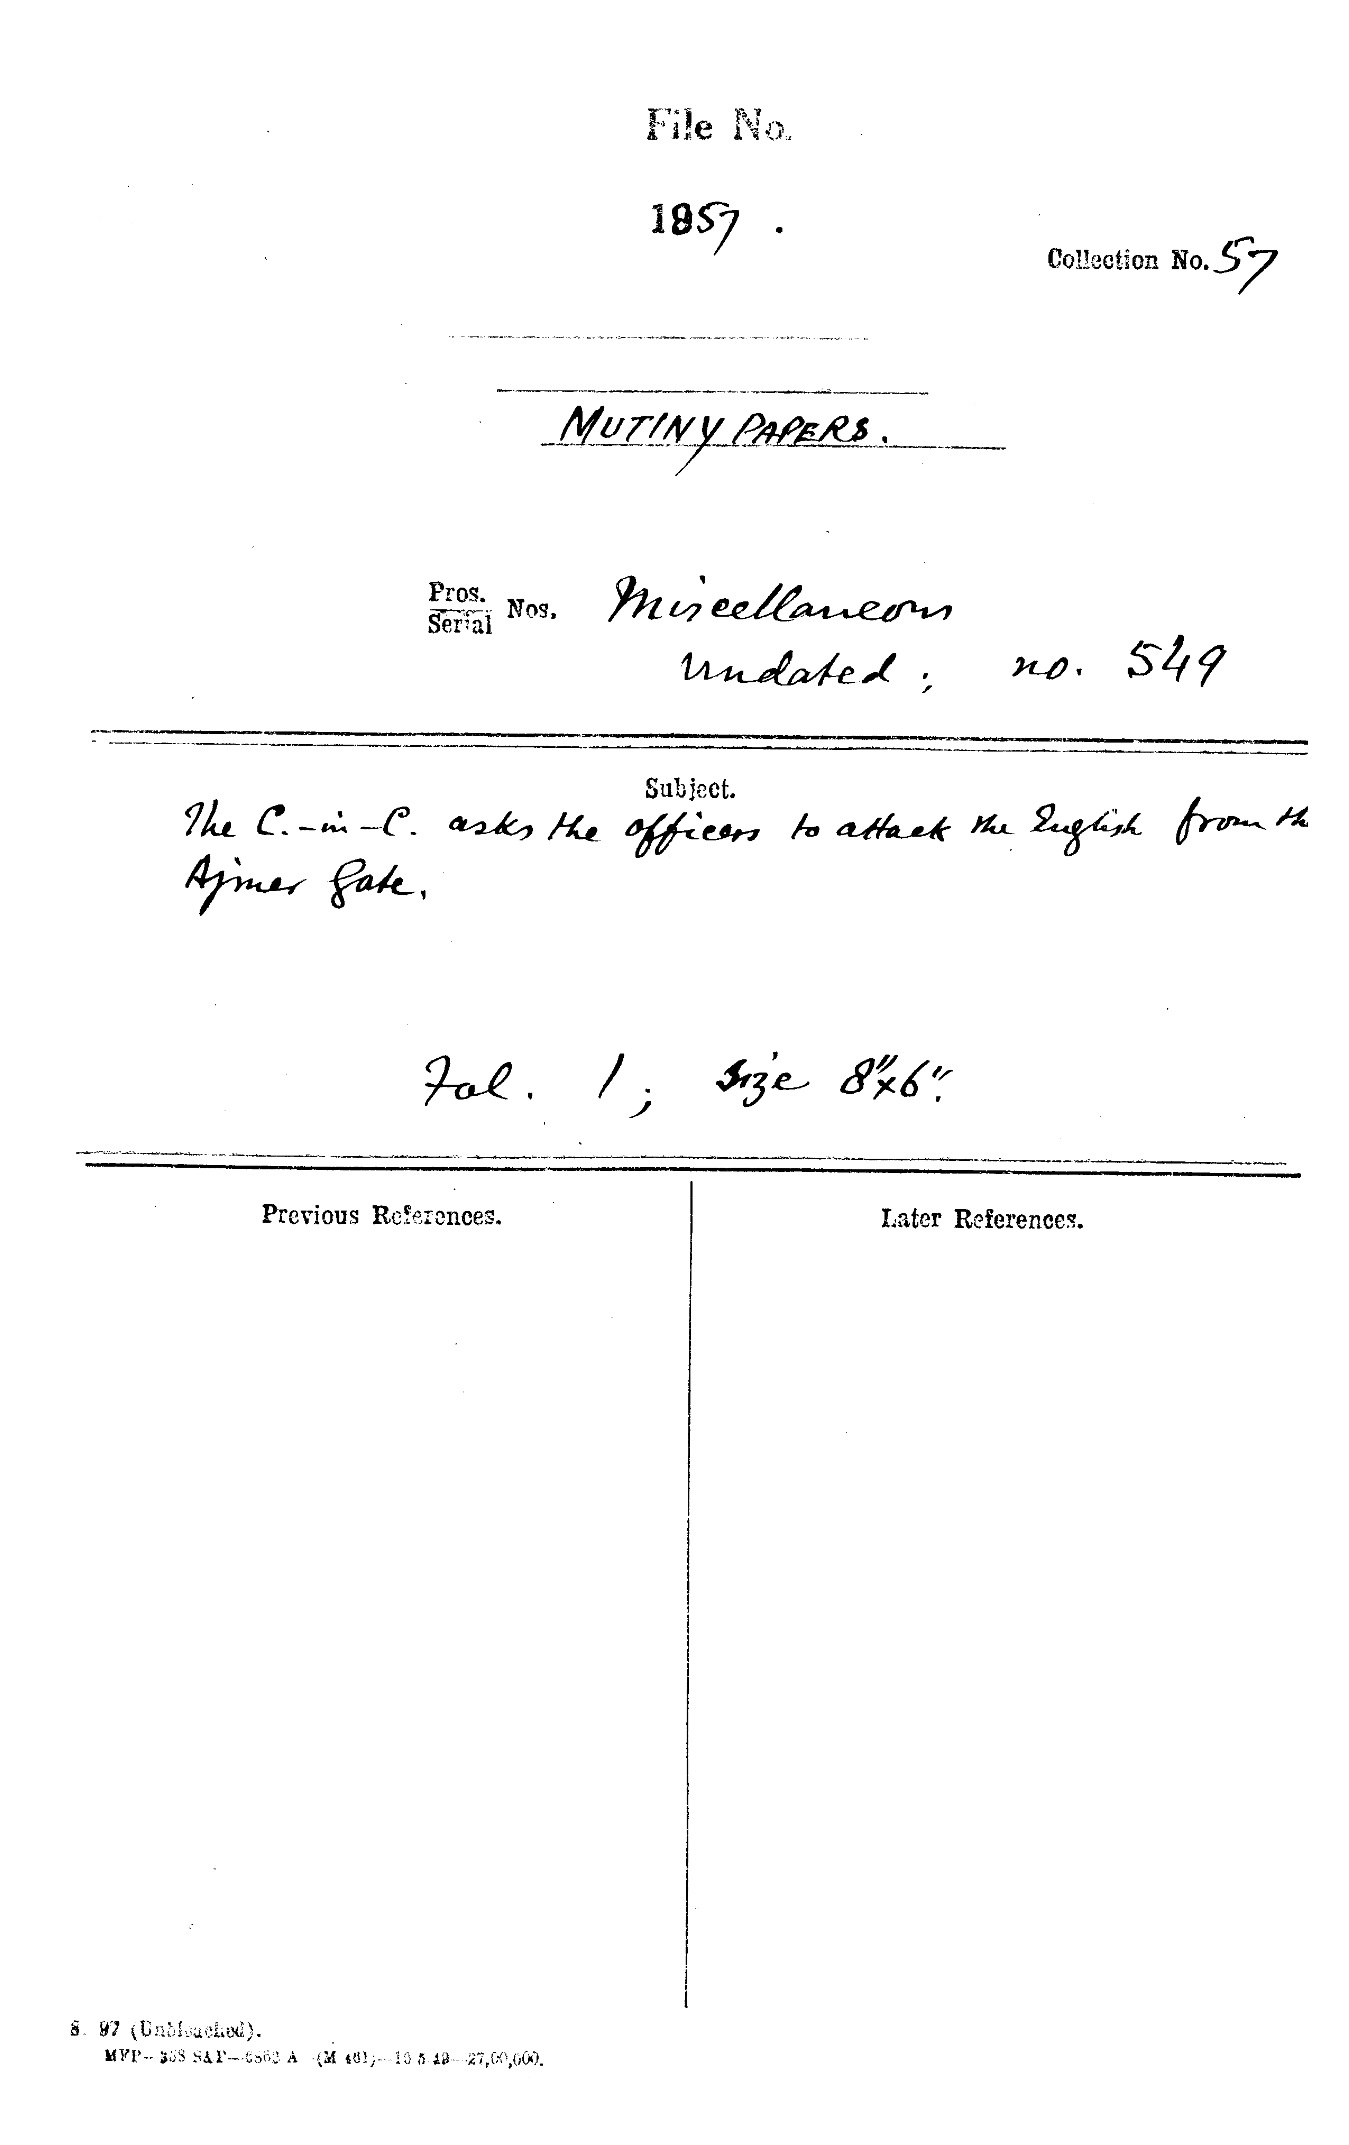 File No.
1857 .
Collection No. 57
MUTINY PAPERS.
Pros.
Serial Nos. Miscellaneous
Undated; no. 549
Subject.
The C.-in-C. asks the officers to attack the English from th
Ajmer Gate.
Fol. 1; size 8"x6".
Previous References.
Later References.
S. 97 (Unbleached).
MFP